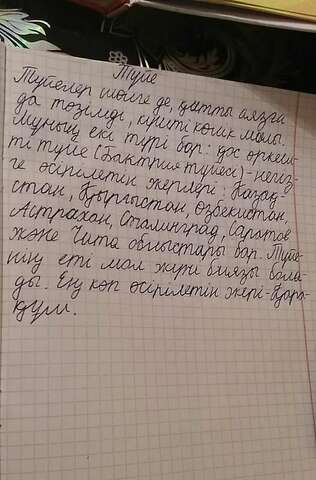 Түйе
Түйелер шөлге де, қатты аязға
да төзімді, кірпті көлік малы.
Мұның екі түрі бар: қос өркеш-
ті түйе (Бактрия түйесі)-негіз-
ге өсірілетін жерлері: Қазақ-
стан, Қырғыстан, Өзбекистан,
Астрахан, Сталинград, Саратов
және Чита облыстары бар. Түйе-
нің еті мол жүні биязы бола-
ды. Ең көп өсірілетін жері-Қара-
құм.